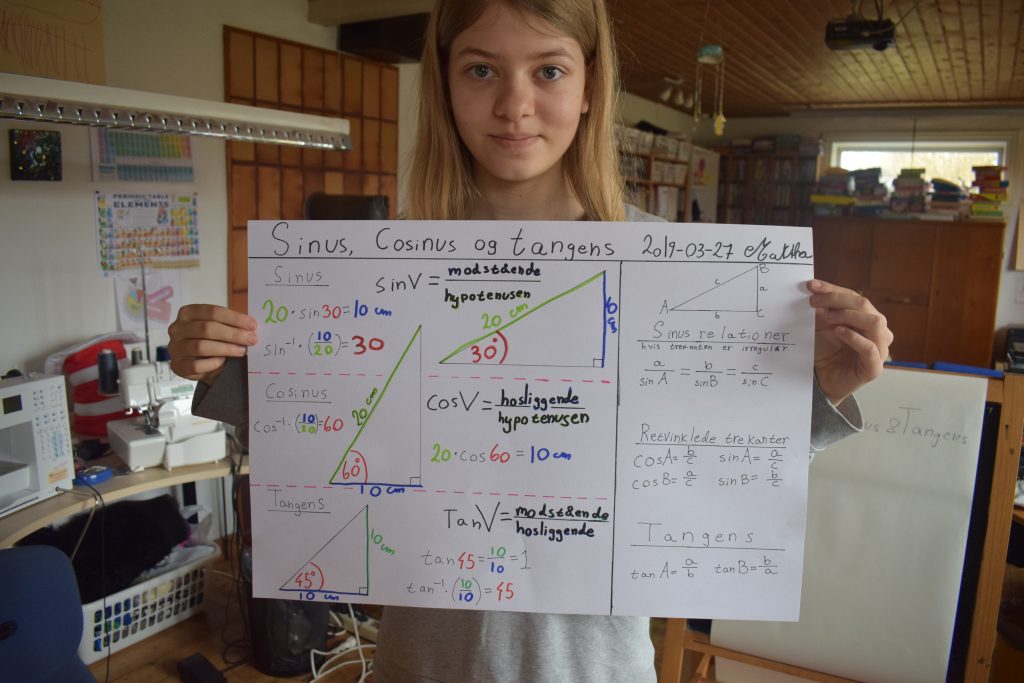 PERIODIC TABLE
ELEMENTS
Sinus, Cosinus og tangens 2019-03-27
Sinus
sinV = modstående / hypotenusen
20 · sin30 = 10 cm
sin⁻¹ · (10/20) = 30
20 cm
10 cm
30°
Cosinus
cos⁻¹ · (10/20) = 60
20 cm
60°
10 cm
cosV = hosliggende / hypotenusen
20 · cos 60 = 10 cm
Tangens
10 cm
45°
10 cm
TanV = modstående / hosliggende
tan 45 = 10/10 = 1
tan⁻¹ · (10/10) = 45
B
c
a
A
b
C
Sinus relationer
hvis trekanten er irregulær
a/sin A = b/sin B = c/sin C
Retvinklede trekanter
cosA = b/c sinA = a/c
cosB = a/c sinB = b/c
Tangens
tan A = a/b tan B = b/a
us & Tangens